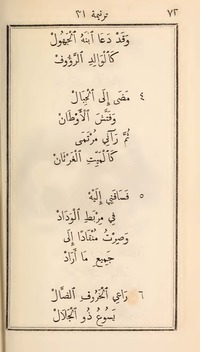 ترنيمة ٣١ ٧٢
وَقَدْ دَعَا ٱبْنَهُ ٱلْجَهُولْ
كَٱلْوَالِدِ ٱلرَّؤُوفْ
٤ مَضَى إِلَى ٱلْجِبَالْ
وَفَتَّشَ ٱلْأَوْطَانْ
ثُمَّ رَآنِي مُرْتَمَى
كَٱلْمَيِّتِ ٱلْغَرْثَانْ
٥ فَسَاقَنِي إِلَيْهْ
فِي مِرْبَطِ ٱلْوَدَادْ
وَصِرْتُ مُنْقَادًا إِلَى
جَمِيعِ مَا أَرَادْ
٦ رَاعِي ٱلْخَرُوفِ ٱلضَّالْ
يَسُوعُ ذُو ٱلْجَلَالْ